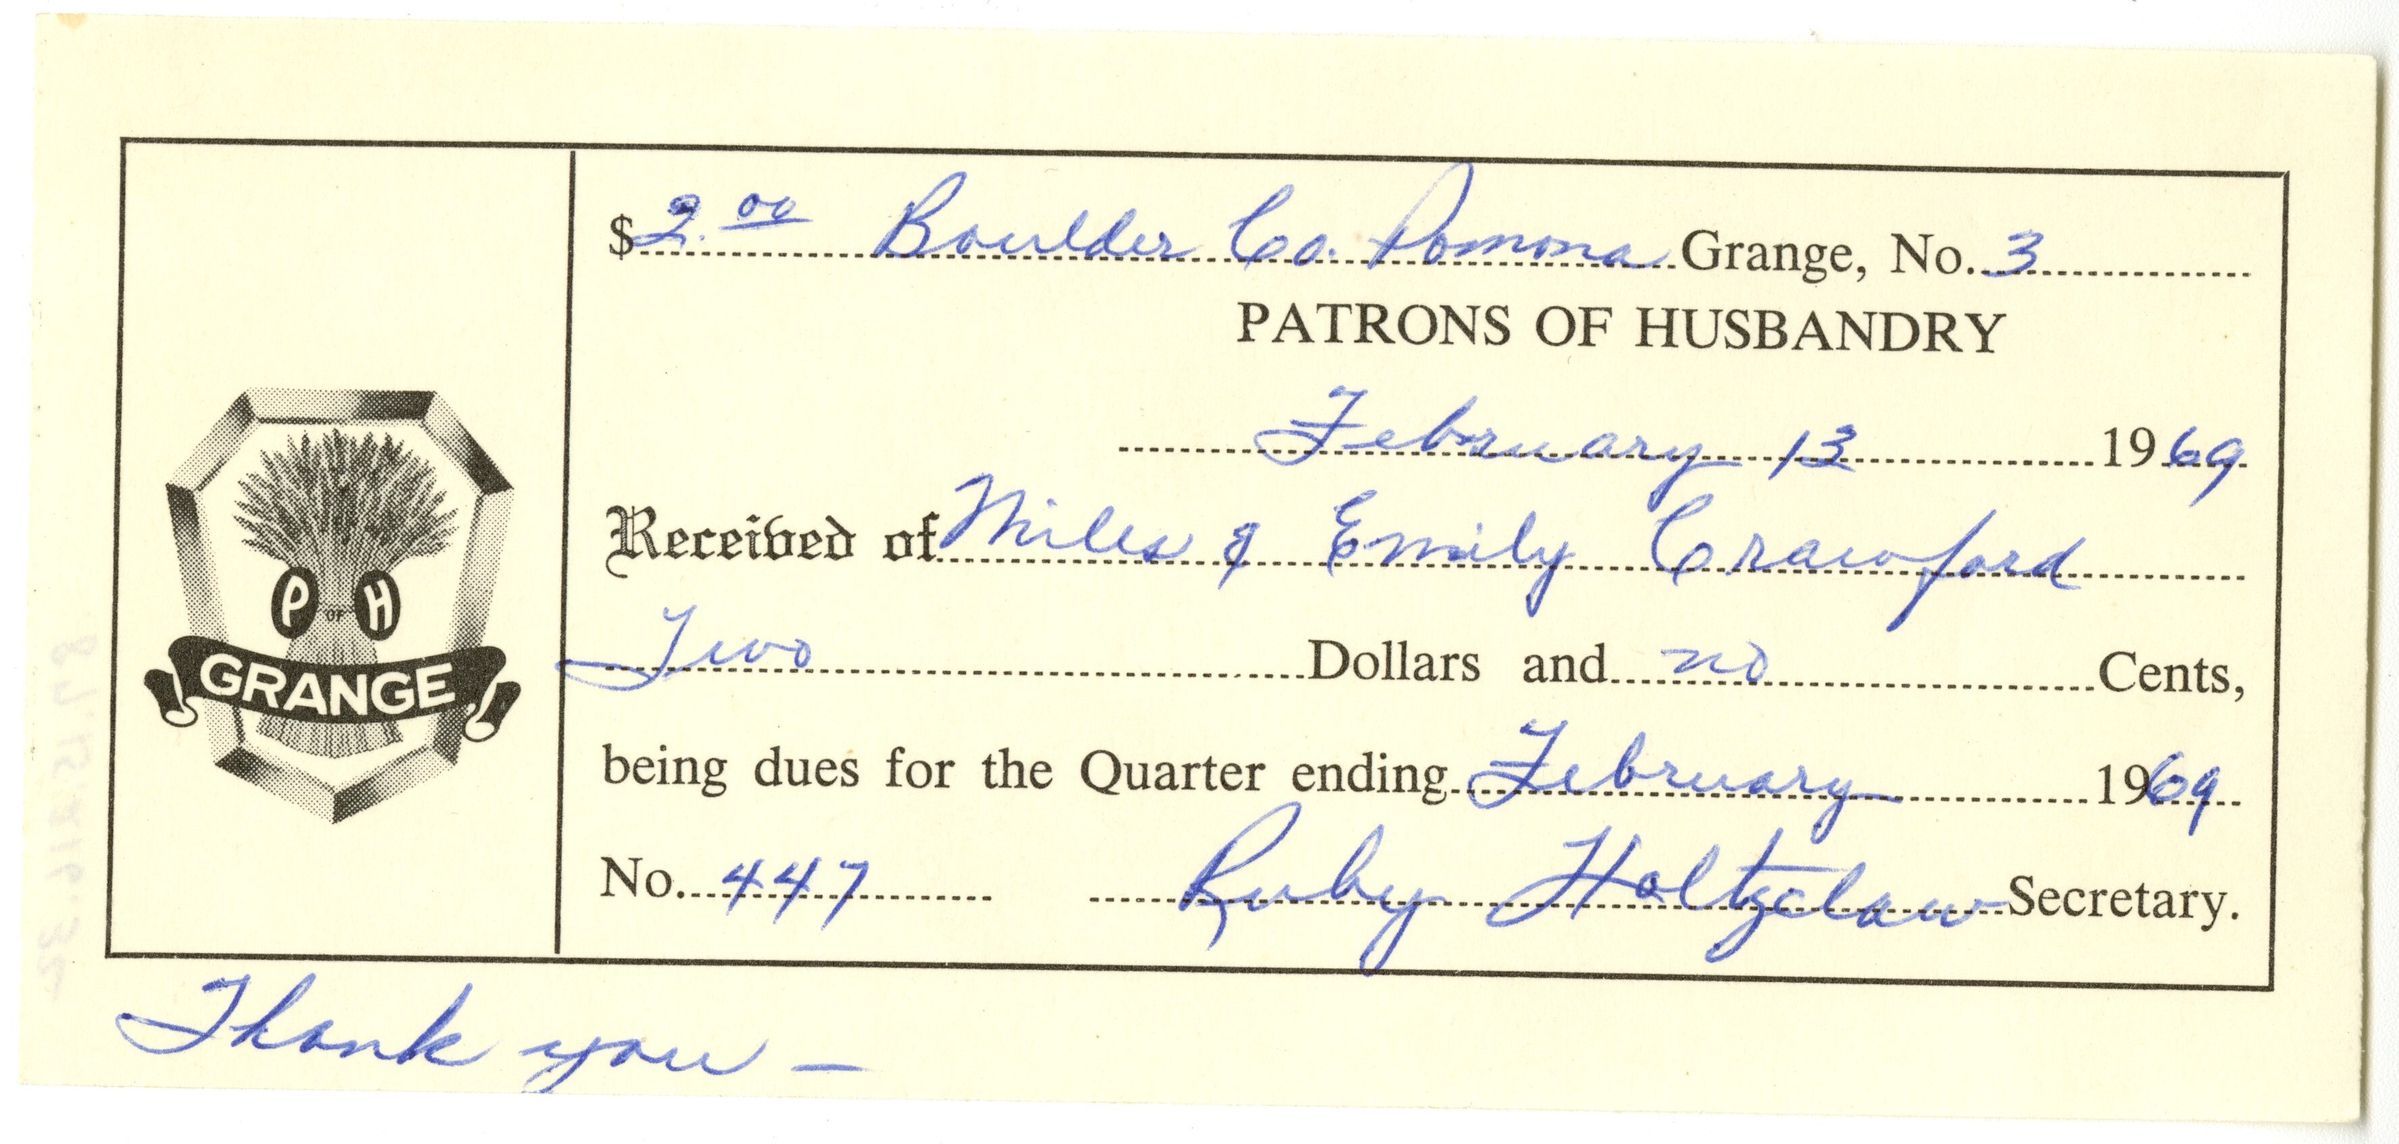 P OF H
GRANGE
$2.00 Boulder Co. Pomona Grange, No. 3
PATRONS OF HUSBANDRY
February 13 1969
Received of Miles & Emily Crawford
Two Dollars and no Cents,
being dues for the Quarter ending February 1969
No. 447 Ruby Holtzclaw Secretary.
Thank you —